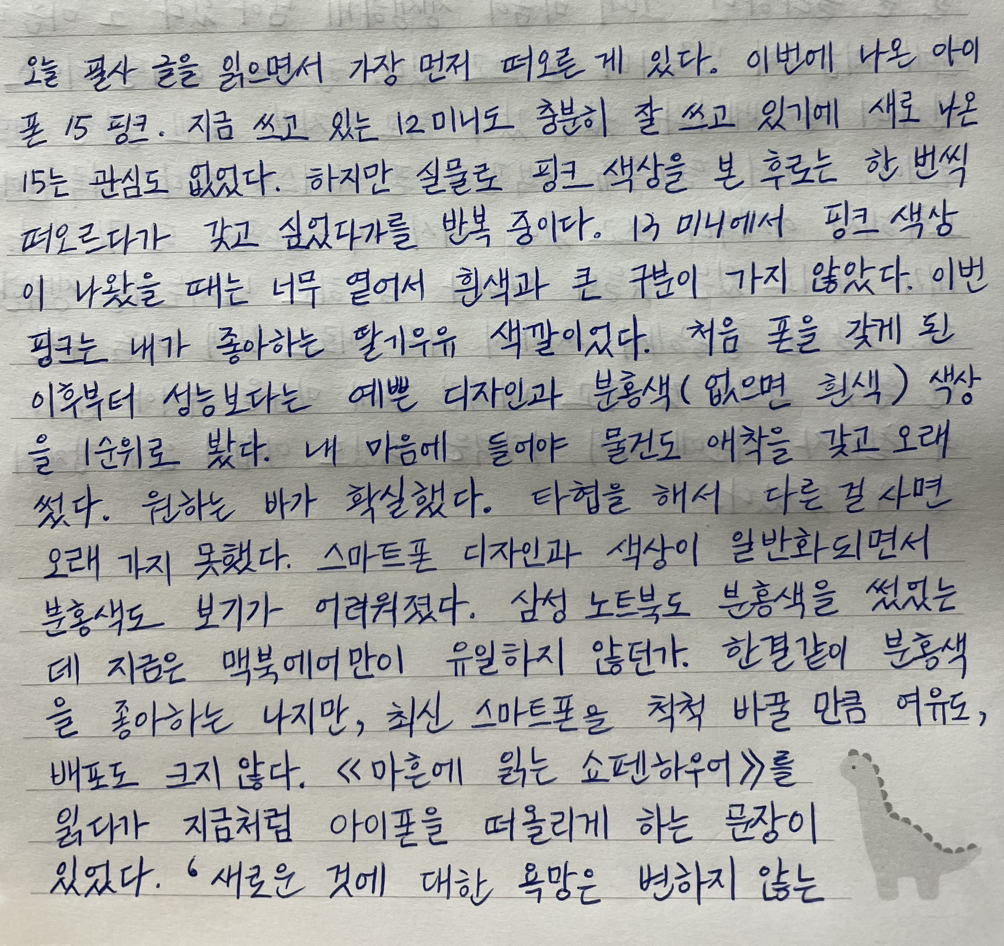 오늘 필사 글을 읽으면서 가장 먼저 떠오른 게 있다. 이번에 나온 아이
폰 15 핑크. 지금 쓰고 있는 12미니도 충분히 잘 쓰고 있기에 새로 나온
15는 관심도 없었다. 하지만 실물로 핑크 색상을 본 후로는 한 번씩
떠오르다가 갖고 싶었다가를 반복 중이다. 13 미니에서 핑크 색상
이 나왔을 때는 너무 옅어서 흰색과 큰 구분이 가지 않았다. 이번
핑크는 내가 좋아하는 딸기우유 색깔이었다. 처음 폰을 갖게 된
이후부터 성능보다는 예쁜 디자인과 분홍색(없으면 흰색) 색상
을 1순위로 봤다. 내 마음에 들어야 물건도 애착을 갖고 오래
썼다. 원하는 바가 확실했다. 타협을 해서 다른 걸 사면
오래 가지 못했다. 스마트폰 디자인과 색상이 일반화되면서
분홍색도 보기가 어려워졌다. 삼성 노트북도 분홍색을 썼었는
데 지금은 맥북에어만이 유일하지 않던가. 한결같이 분홍색
을 좋아하는 나지만, 최신 스마트폰을 척척 바꿀 만큼 여유도,
배포도 크지 않다. 《마흔에 읽는 쇼펜하우어》를
읽다가 지금처럼 아이폰을 떠올리게 하는 문장이
있었다. ‘새로운 것에 대한 욕망은 변하지 않는